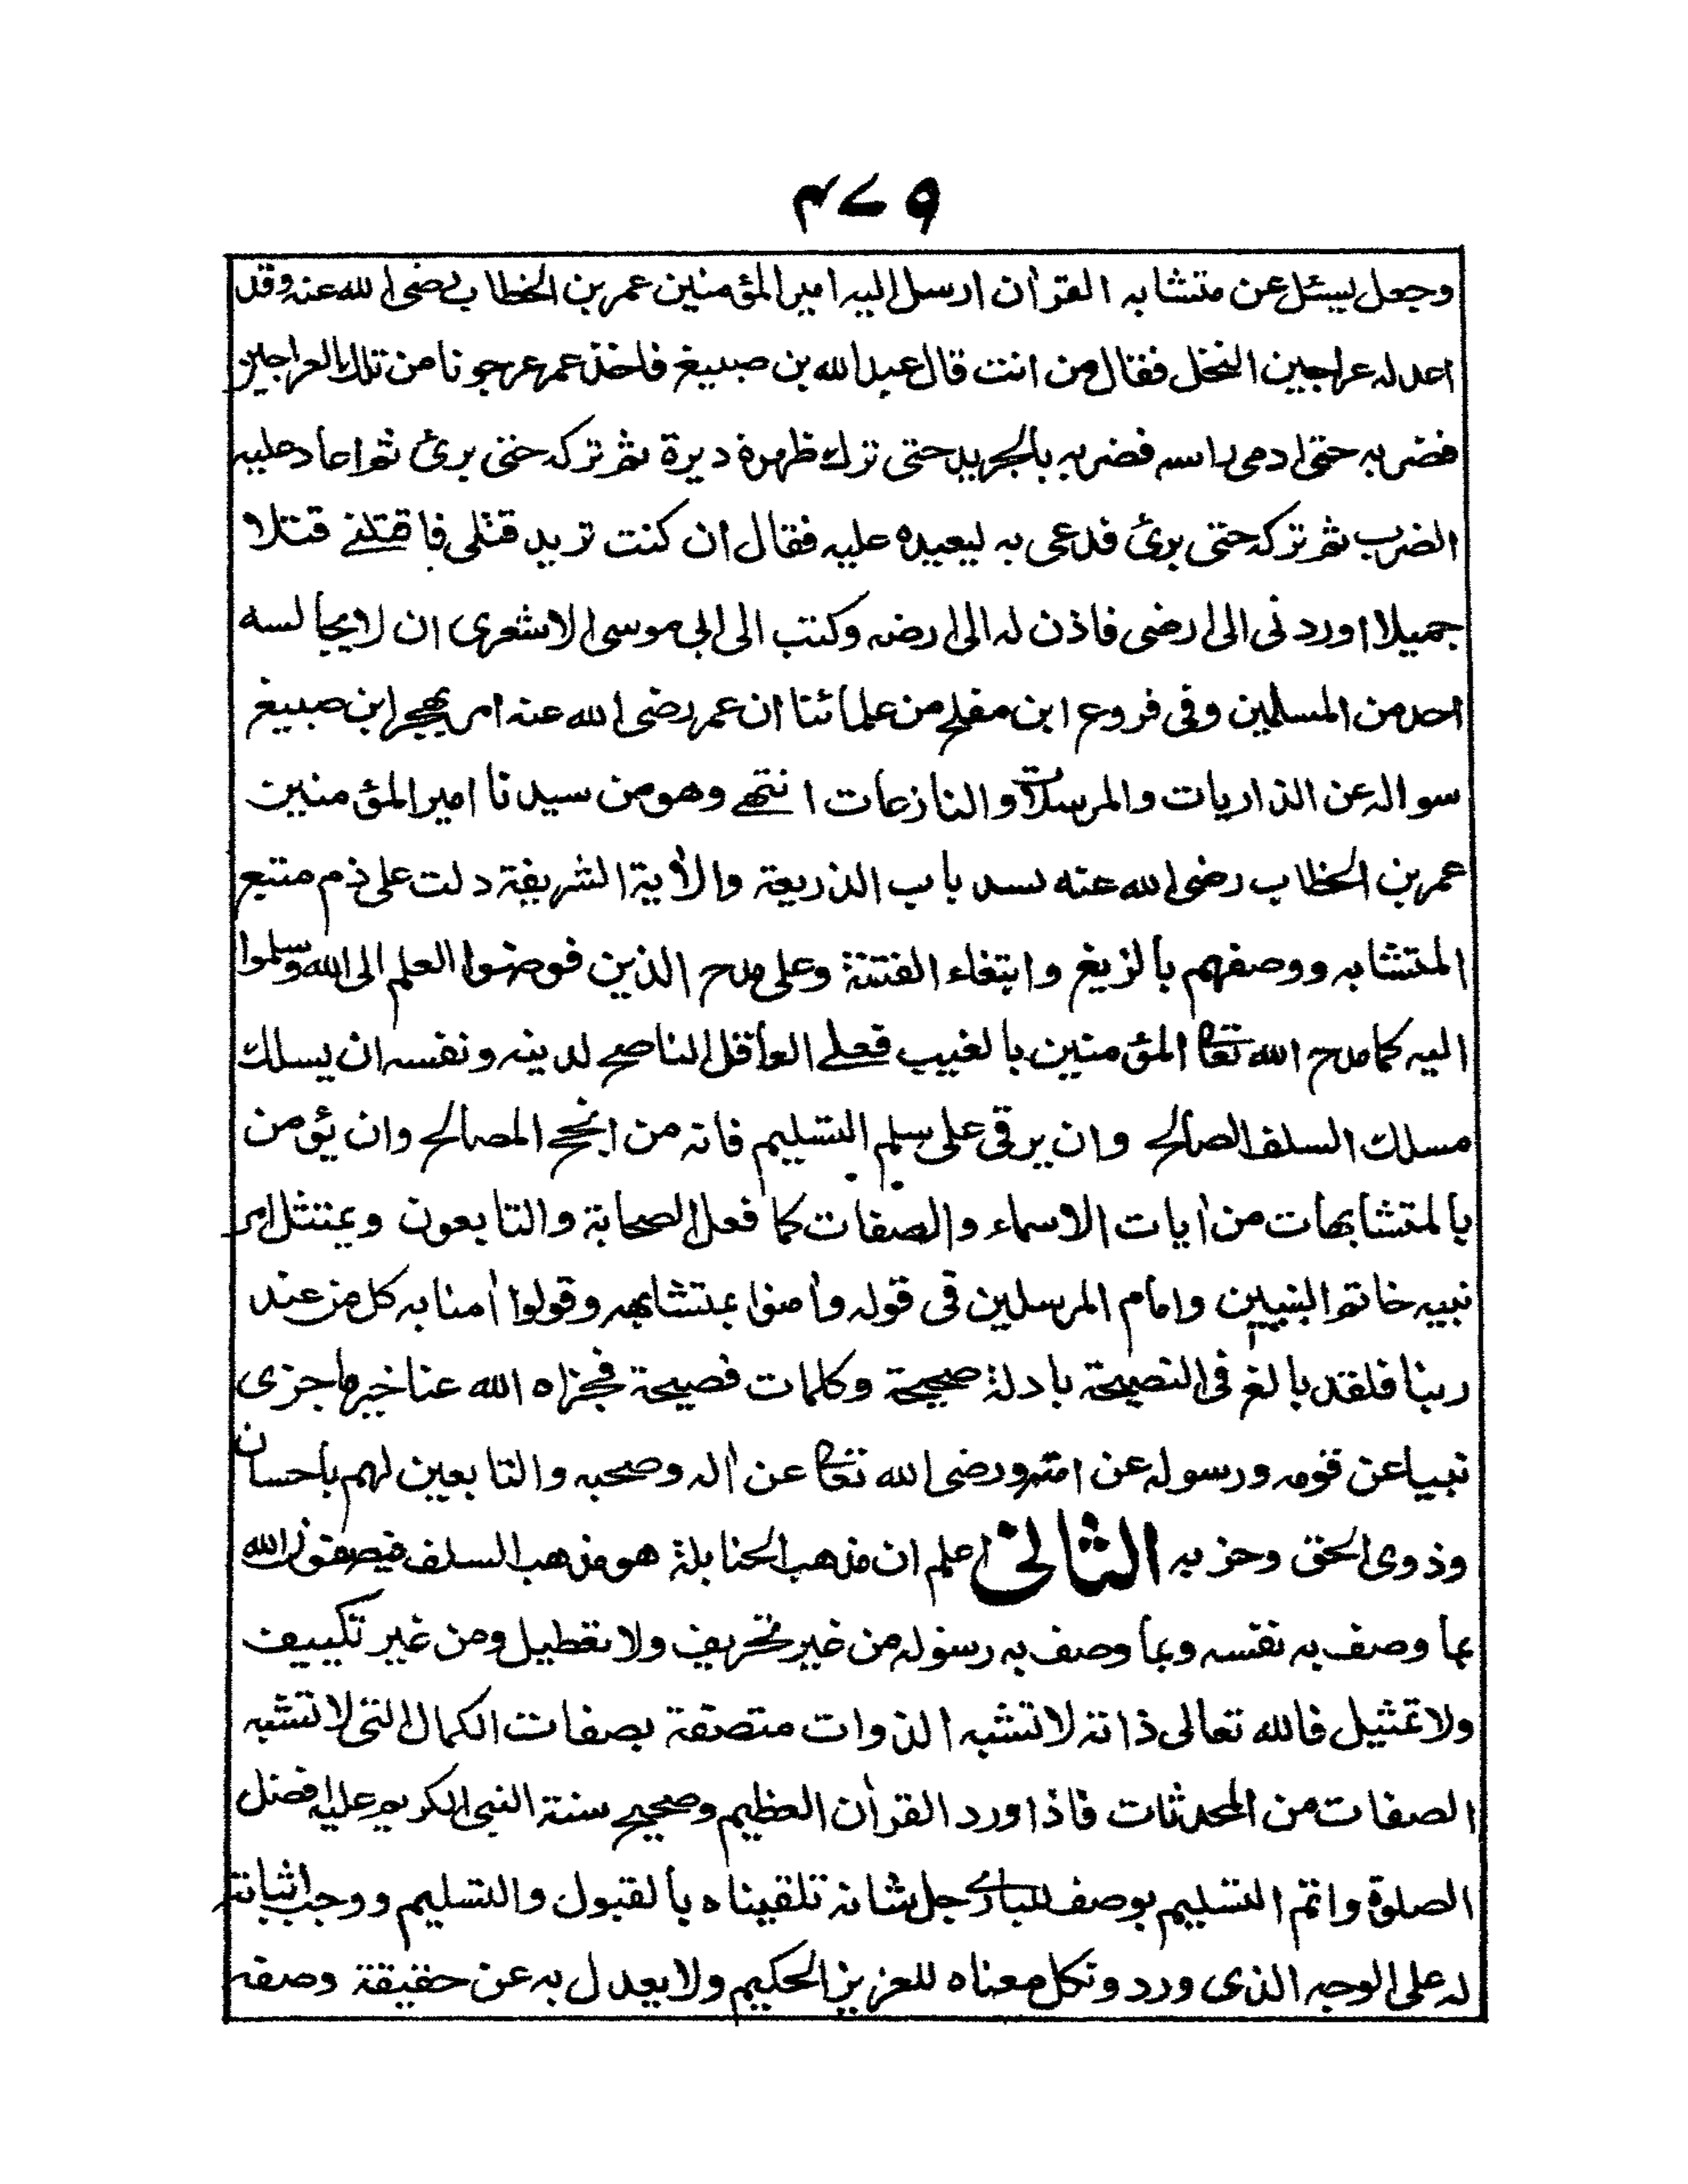 ۴۷۹
وجعل يسئل عن متشابه القرآن ارسل اليه امير المؤمنين عمر بن الخطاب رضي الله عنه وقد
اعد له عراجين النخل فقال من انت قال عبد الله بن صبيغ فاخذ عمر عرجونا من تلك العراجين
فضربه حتى ادمى راسه فضربه بالجريد حتى ترك ظهره دبرة ثم تركه حتى برئ ثم اعاد عليه
الضرب ثم تركه حتى برئ فدعى به ليعيده عليه فقال ان كنت تريد قتلي فاقتلنے قتلا
جميلا او ردنى الى ارضى فاذن له الى ارضه وكتب الى ابي موسى الاشعرى ان لا يجالسه
احد من المسلمين وفى فروع ابن مفلح من علمائنا ان عمر رضى الله عنه امر بهجر ابن صبيغ
سواله عن الذاريات والمرسلات والنازعات انتهے وهو من سيدنا امير المؤمنين
عمر بن الخطاب رضى الله عنه لسد باب الذريعة والآية الشريفة دلت على ذم متبع
المتشابه ووصفهم بالزيغ وابتغاء الفتنة وعلى مدح الذين فوضوا العلم الى الله وسلموا
اليه كما مدح الله تعالى المؤمنين بالغيب فعلے العاقل الناصح لدينه ونفسه ان يسلك
مسلك السلف الصالح وان يرقى على سلم التسليم فانه من انجح المصالح وان يؤمن
بالمتشابهات من آيات الاسماء والصفات كما فعل الصحابة والتابعون ويمتثل امر
نبيه خاتم النبيين وامام المرسلين فى قوله وآمنوا بمتشابهه وقولوا آمنا به كل من عند
ربنا فلقد بالغ فى النصيحة بادلة صحيحة وكلمات فصيحة فجزاه الله عنا خير ما جزى
نبيا عن قومه ورسوله عن امته ورضى الله تعالى عن آله وصحبه والتابعين لهم باحسان
وذوى الحق وحزبه الثاني اعلم ان مذهب الحنابلة هو مذهب السلف فيصفون الله
بما وصف به نفسه وبما وصف به رسوله من غير تحريف ولا تعطيل ومن غير تكييف
ولا تمثيل فالله تعالى ذاته لا تشبه الذوات متصفة بصفات الكمال التى لا تشبه
الصفات من المحدثات فاذا ورد القرآن العظيم وصحيح سنة النبى الكريم عليه افضل
الصلوة واتم التسليم بوصف للبارے جل شانه تلقيناه بالقبول والتسليم ووجب اثباته
له على الوجه الذى ورد ونكل معناه للعزيز الحكيم ولا يعدل به عن حقيقة وصفه